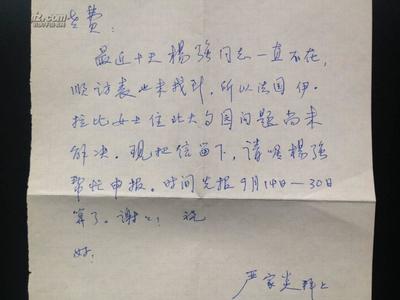 老费:
最近十天杨强同志一直不在,
顺访裘也未找到,所以法国伊·
拉比女士住北大勺园问题尚未
解决。现把信留下,请嘱杨强
帮忙申报。时间先报9月14日—30日
算了。谢谢!祝
好!
严家炎 拜上